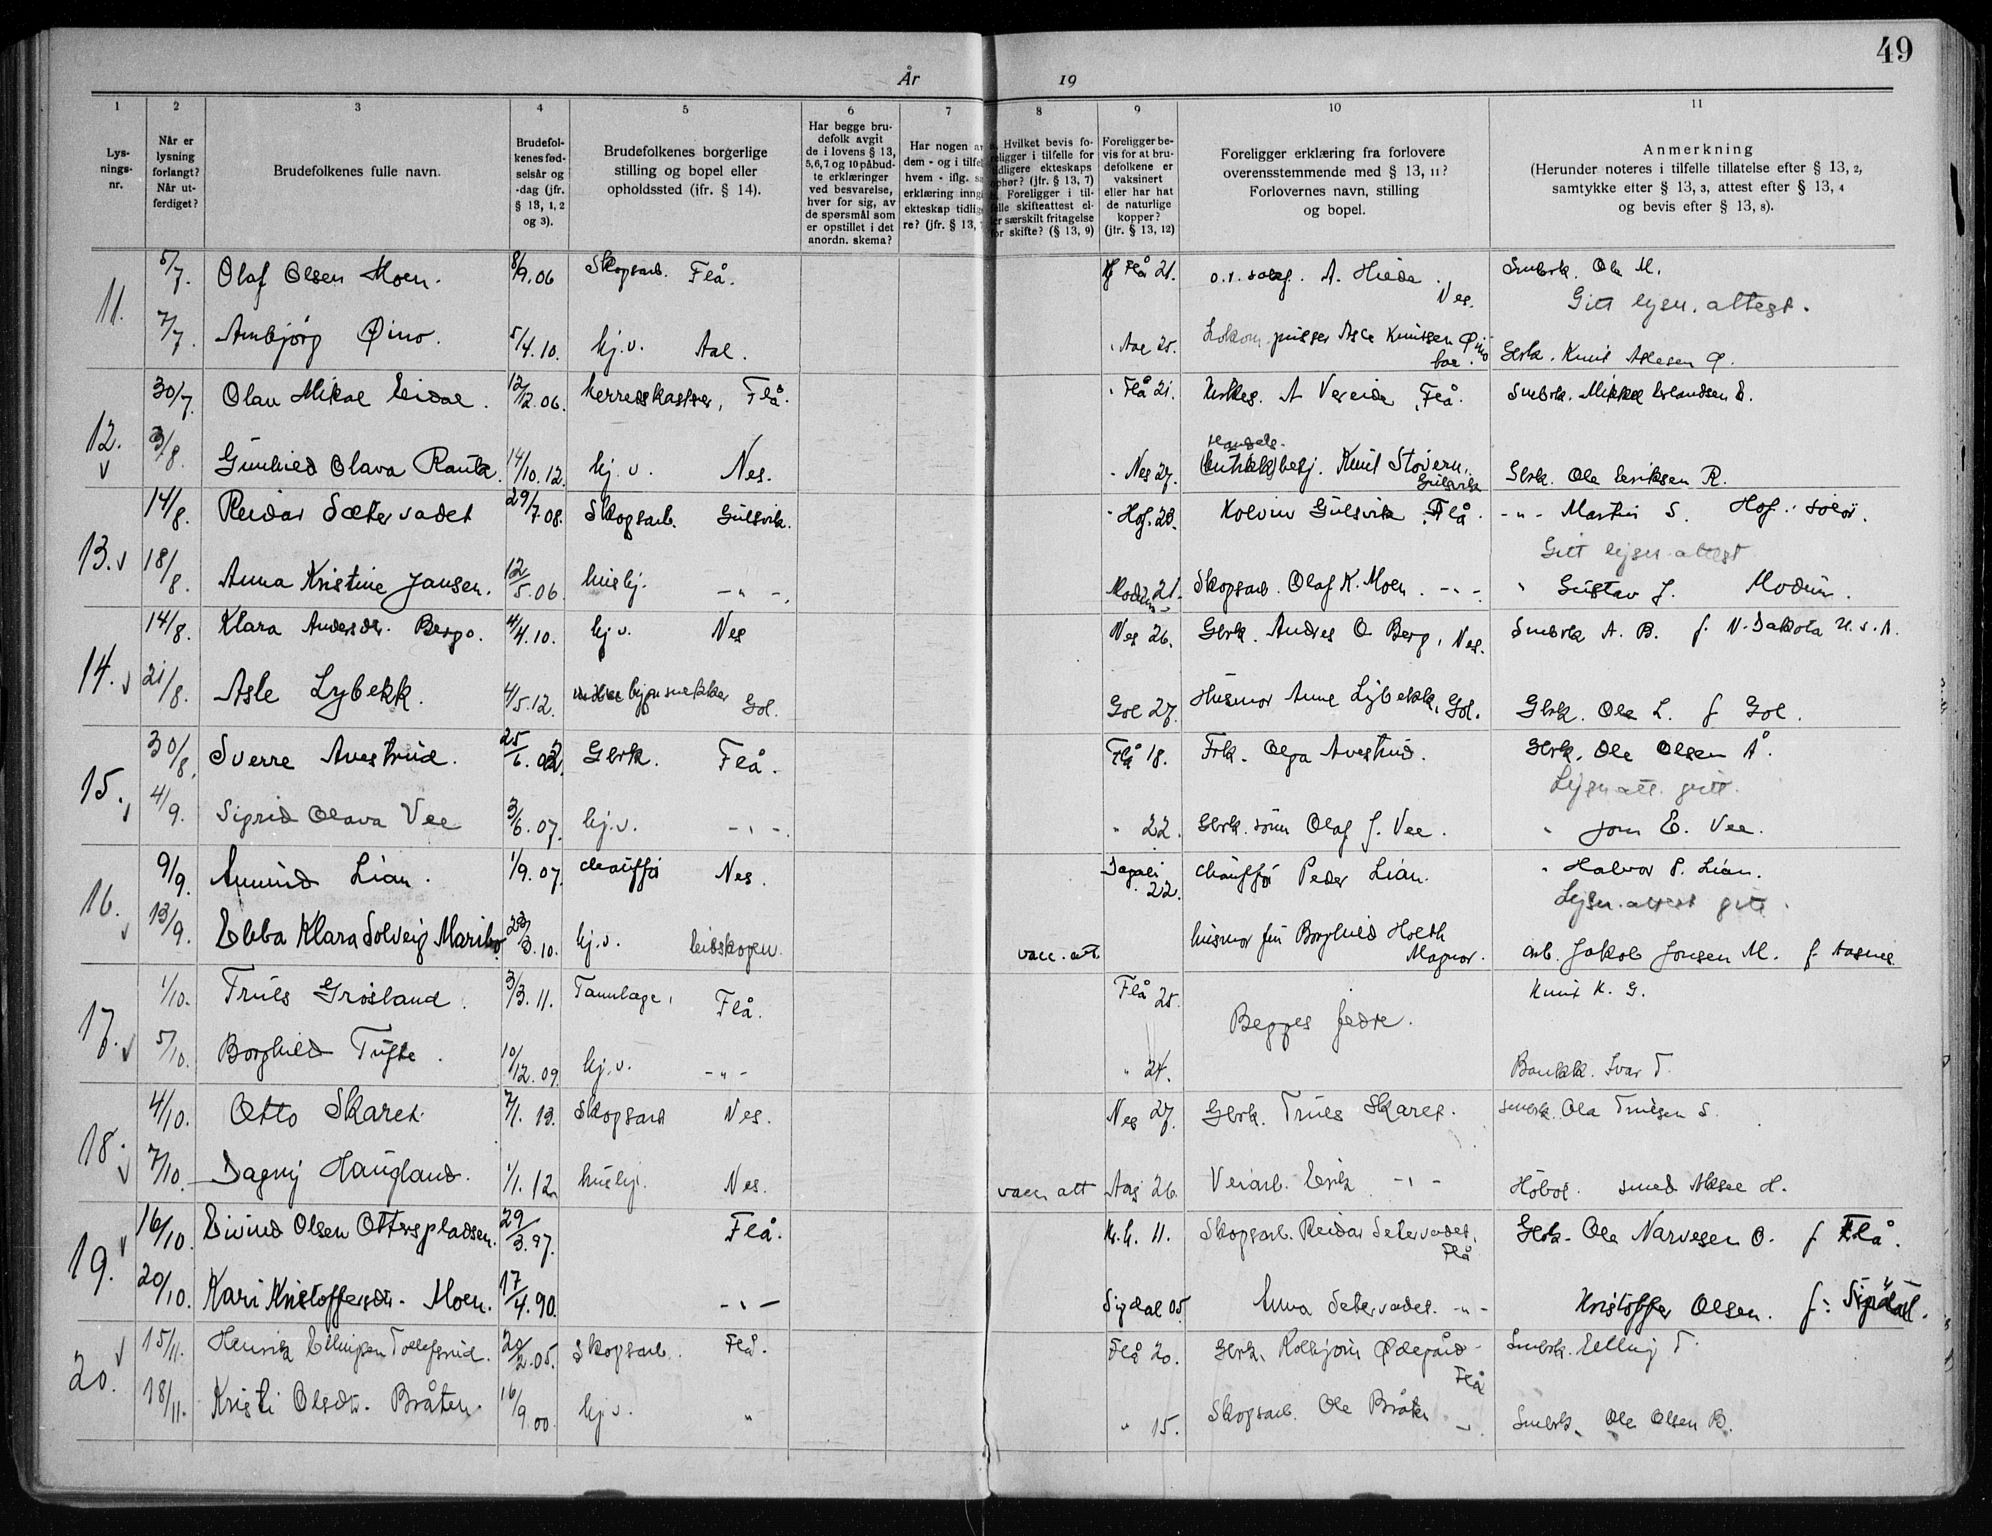 49
År 19
1 2 3 4 5 6 7 8 9 10 11
Lys-
nings-
nr.
Når er
lysning
forlangt?
Når ut-
ferdiget?
Brudefolkenes fulle navn.
Brudefol-
kenes fød-
selsår og
-dag (jfr.
§ 13, 1, 2
og 3).
Brudefolkenes borgerlige
stilling og bopel eller
opholdssted (jfr. § 14).
Har begge bru-
defolk avgit
de i lovens § 13,
5, 6, 7 og 10 påbud-
te erklæringer
ved besvarelse,
hver for sig, av
de spørsmål som
er opstillet i det
anordn. skema?
Har nogen av
dem - og i tilfel
hvem - iflg.
erklæring inngå
ekteskap tidlig
re? (jfr. § 13,
Hvilket bevis fo-
religger i tilfelle for
tidligere ekteskaps
ophør? (jfr. § 13, 7)
Foreligger i til-
felle skifteattest el-
ler særskilt fritagelse
for skifte? (§ 13, 9)
Foreligger be-
vis for at bru-
defolkene er
vaksinert
eller har hat
de naturlige
kopper?
(jfr. § 13, 12)
Foreligger erklæring fra forlovere
overensstemmende med § 13, 11?
Forlovernes navn, stilling
og bopel.
Anmerkning
(Herunder noteres i tilfelle tillatelse efter § 13, 2,
samtykke efter § 13, 3, attest efter § 13, 4
og bevis efter § 13, 8).
11. 5/7. Olaf Olsen Moen. 8/9.06 Skogsarb. Flå. Flå 21. A. Hilde Nes. Smbrk. Ole M.
Gitt lysn. attest.
7/7. Ambjörg Øino. 5/4.10. hj.v. Aal. Aal 25. Lokom. pusser Asle Knutsen Øino Gbrk. Knut Aslesen Ø.
12. v 30/7. Olav Mikal Eidal. 12/12.06. herredskasser, Flå. Flå 21. Kirkes. A Vereide, Flå. Smbrk. Mikkel Erlandsen E.
3/8. Gunhild Olava Rante. 14/10.12. hj.v. Nes. - Nes 27. Handels-
betj. Knut Stövern, Gulsvik Gbrk. Ole Eriksen R.
13. v 14/8. Reidar Sætervadet 29/7.08. Skogsarb. Gulsvik. - Hof. 23. Kolvin Gulsvik, Flå. -"- Martin S. Hof i Solör.
Gitt lysn. attest
18/8. Anna Kristine Jansen. 12/5.06. hushj. -"-. Modum 21. Skogsarb. Olaf K. Moen. -"-. " Gustav J. Modum.
14. v 14/8. Klara Andersdr. Bergo. 4/4.10. hj.v. Nes Nes 26. Gbrk. Andres O. Berg, Nes. Smbrk A. B. f. N. Dakota U.S.A.
21/8. Asle Lybekk. 4/5.12. bygn snekker Gol. Gol 27. Husmor Anne Lybekk, Gol. Gbrk. Ole L. f Gol.
15. v 30/8. Sverre Avestrud. 25/6.02. Gbrk. Flå. Flå 18. Frk. Olga Avestrud. Gbrk. Ole Olsen Å.
Lysn att. gitt.
4/9. Sigrid Olava Vee 3/6.07. hj.v. -"-. " 22. Gbrk. sönn Olaf J. Vee. " Jorn E. Vee.
16. v 9/9. Amund Lian. 1/9.07. chauffør Nes. Dagali 22. Chauffør Peder Lian. " Halvor P. Lian.
Lysn. attest gitt.
13/9. Ebba Klara Solveig Maribo. 23/3.10. hj.v. Eidskogen. vacc. att. husmor fru Borghild Holth Magnor. Arb. Jakob Jonsen M. f. Aasnes
17. v 1/10. Truls Grösland. 3/3.11. Tannlæge, Flå. Flå 25. Knut K. G.
Begges fedre.
5/10. Borghild Tufte. 10/12.09. hj.v. -"- " 24. Bankk. Ivar T.
18. v 4/10. Otto Skaret 7/1.13. Skogsarb Nes. Nes 27. Gbrk. Truls Skaret. Smbrk. Ola Trulsen S.
7/10. Dagny Haugland. 1/1.12. huslig. Nes. vacc att Aas 26. Veiarb. Erik -"- Höbol. smed Aksel H.
19. v 16/10. Eivind Olsen Ottersplassen. 29/3.97. Flå. 11. Skogsarb. Reidar Setervadet, Flå Gbrk. Ole Narvesen O. f Flå.
20/10. Kari Kristoffersdtr. Moen. 17/4.90. -"- Sigdal 05. Anna Setervadet. -"- Kristoffer Olsen. f: Sigdal.
20. v 15/11. Henrik Ellingsen Tollefsrud. 20/2.05. Skogsarb. Flå. Flå 20. Gbrk. Kolbjörn Ødegård Flå Smbrk. Elling T.
18/11. Kristi Olsdtr. Bråten. 16/9.00. hj.v. " " 15. Skogsarb. Ole Bråten -"-. Smbrk. Ole Olsen B.